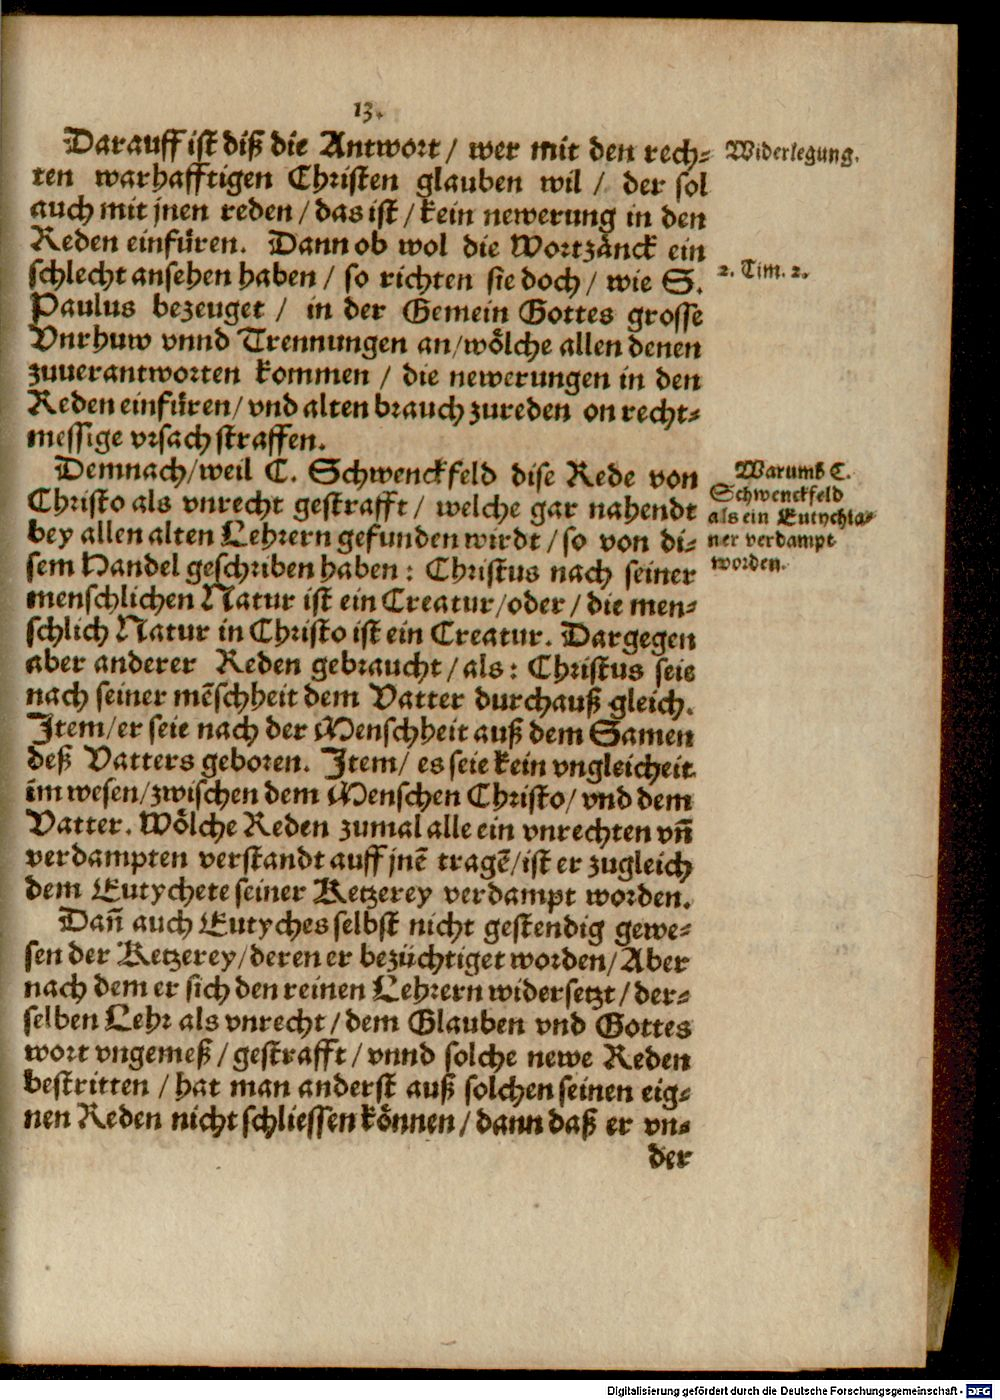 13.
Darauff ist diß die Antwort / wer mit den rech-
ten warhafftigen Christen glauben wil / der sol
auch mit jnen reden / das ist / kein newerung in den
Reden einfüren. Dann ob wol die Wortzänck ein
schlecht ansehen haben / so richten sie doch / wie S.
Paulus bezeuget / in der Gemein Gottes grosse
Vnrhuw vnnd Trennungen an / wölche allen denen
zuuerantworten kommen / die newerungen in den
Reden einfüren / vnd alten brauch zureden on recht-
messige vrsach straffen.
Widerlegung.
2. Tim. 2.
Demnach / weil C. Schwenckfeld dise Rede von
Christo als vnrecht gestrafft / welche gar nahendt
bey allen alten Lehrern gefunden wirdt / so von di-
sem Handel geschriben haben : Christus nach seiner
menschlichen Natur ist ein Creatur / oder / die men-
schlich Natur in Christo ist ein Creatur. Dargegen
aber anderer Reden gebraucht / als : Christus seie
nach seiner mēschheit dem Vatter durchauß gleich.
Item / er seie nach der Menschheit auß dem Samen
deß Vatters geboren. Item / es seie kein vngleicheit
im wesen / zwischen dem Menschen Christo / vnd dem
Vatter. Wölche Reden zumal alle ein vnrechten vñ
verdampten verstandt auff jnē tragē / ist er zugleich
dem Eutychete seiner Ketzerey verdampt worden.
Warumb C.
Schwenckfeld
als ein Eutychia-
ner verdampt
worden.
Dañ auch Eutyches selbst nicht gestendig gewe-
sen der Ketzerey / deren er bezüchtiget worden / Aber
nach dem er sich den reinen Lehrern widersetzt / der-
selben Lehr als vnrecht / dem Glauben vnd Gottes
wort vngemeß / gestrafft / vnnd solche newe Reden
bestritten / hat man anderst auß solchen seinen eig-
nen Reden nicht schliessen können / dann daß er vn-
der
Digitalisierung gefördert durch die Deutsche Forschungsgemeinschaft - DFG